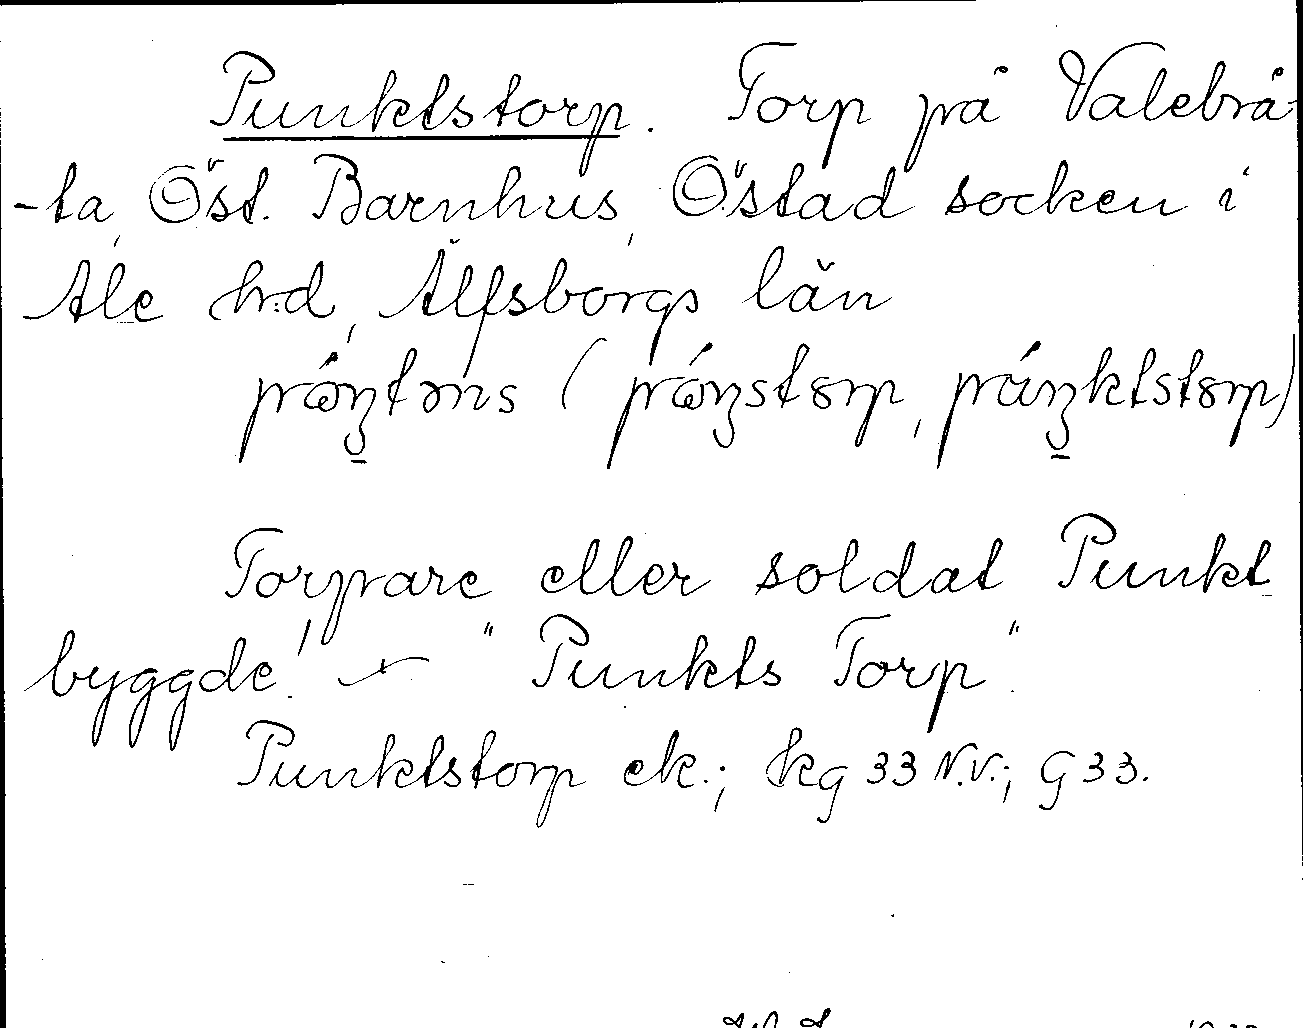 Punktstorp. Torp på Valebrå-
-ta, Öst. Barnhus, Östad socken i
Ale h:d, Älfsborgs län
Torpare eller soldat Punkt
byggde! — "Punkts Torp".
Punktstorp ek.; kg 33 N.V.; G 33.